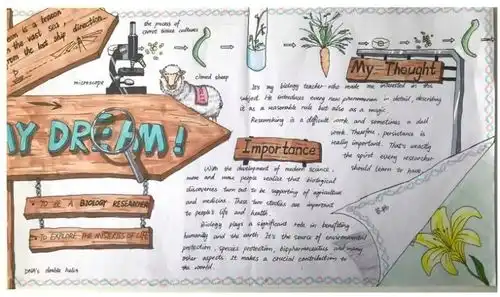 is a beacon
the vast sea
from the lost ship direction
the process of
carrot tissue cultures
microscope
cloned sheep
MY DREAM!
TO BE A BIOLOGY RESEARCHER
TO EXPLORE THE MYSTERIES OF LIFE
DNA's double helix
My Thought
It's my biology teacher who made me interested in the
subject. He introduces every new phenomenon in detail, describing
it as a reasonable role but also as a magic.
Researching is a difficult work and sometimes a dull
work. Therefore, persistence is
really important. That's exactly
the spirit every researcher
should learn to have
Importance
With the development of modern science,
more and more people realize that biological
discoveries turn out to be supporting of agriculture
and medicine. These two studies are important
to people's life and health.
Biology plays a significant role in benefiting
humanity and the earth. It's the source of environmental
protection, species protection, biopharmaceuticals and many
other aspects. It makes a crucial contribution to
the world.